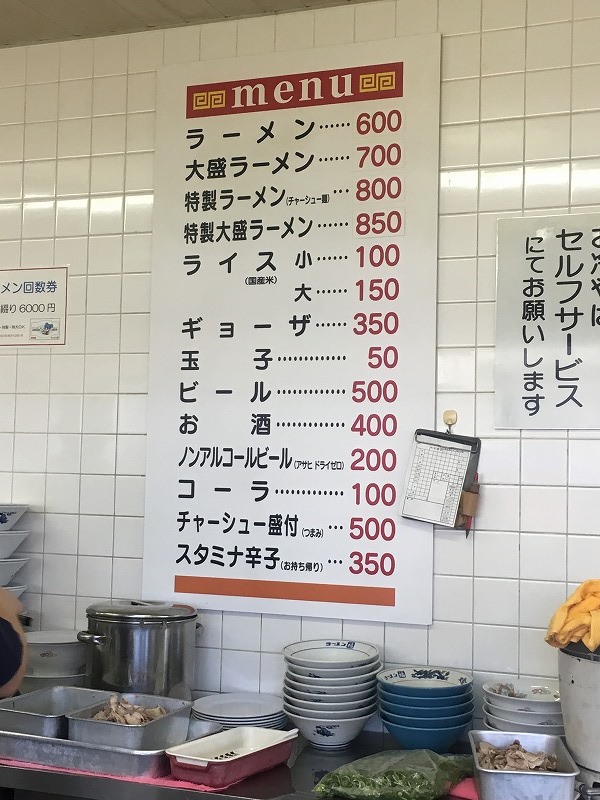 menu
ラーメン……600
大盛ラーメン……700
特製ラーメン(チャーシュー麺)…800
特製大盛ラーメン……850
ライス 小……100
(国産米)
大……150
ギョーザ……350
玉子…………50
ビール……500
お酒…………400
ノンアルコールビール(アサヒ ドライゼロ)200
コーラ…………100
チャーシュー盛付(つまみ)…500
スタミナ辛子(お持ち帰り)…350
メン回数券
綴り6000円
お冷やは
セルフサービス
にてお願いします